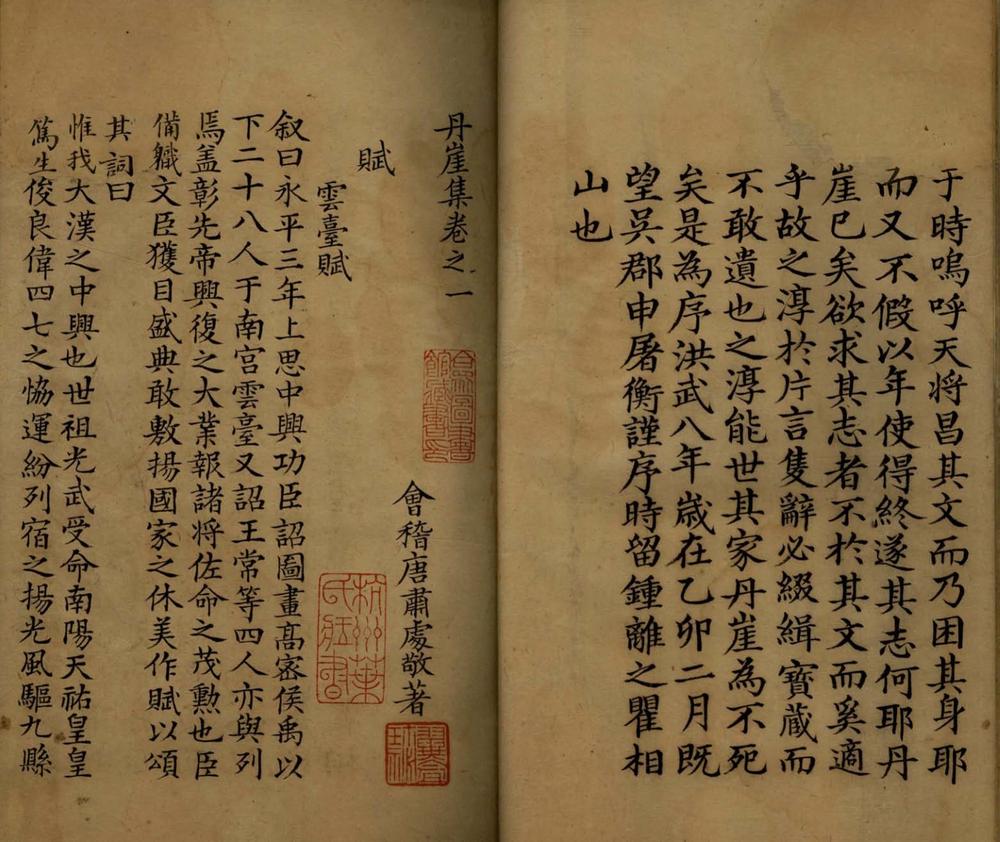 于時嗚呼天将昌其文而乃困其身耶
而又不假以年使得終遂其志何耶丹
崖已矣欲求其志者不於其文而奚適
乎故之淳於片言隻辭必綴緝寶蔵而
不敢遺也之淳能世其家丹崖為不死
矣是為序洪武八年歳在乙卯二月既
望吳郡申屠衡謹序時留鍾離之瞿相
山也
丹崖集卷之一
會稽唐肅處敬著
賦
雲臺賦
叙曰永平三年上思中興功臣詔圖畫髙宻侯禹以
下二十八人于南宫雲臺又詔王常等四人亦與列
焉盖彰先帝興復之大業報諸将佐命之茂勲也臣
備軄文臣獲目盛典敢敷揚國家之休美作賦以頌
其詞曰
惟我大漢之中興也世祖光武受命南陽天祐皇皇
篤生俊良偉四七之恊運紛列宿之揚光風驅九縣